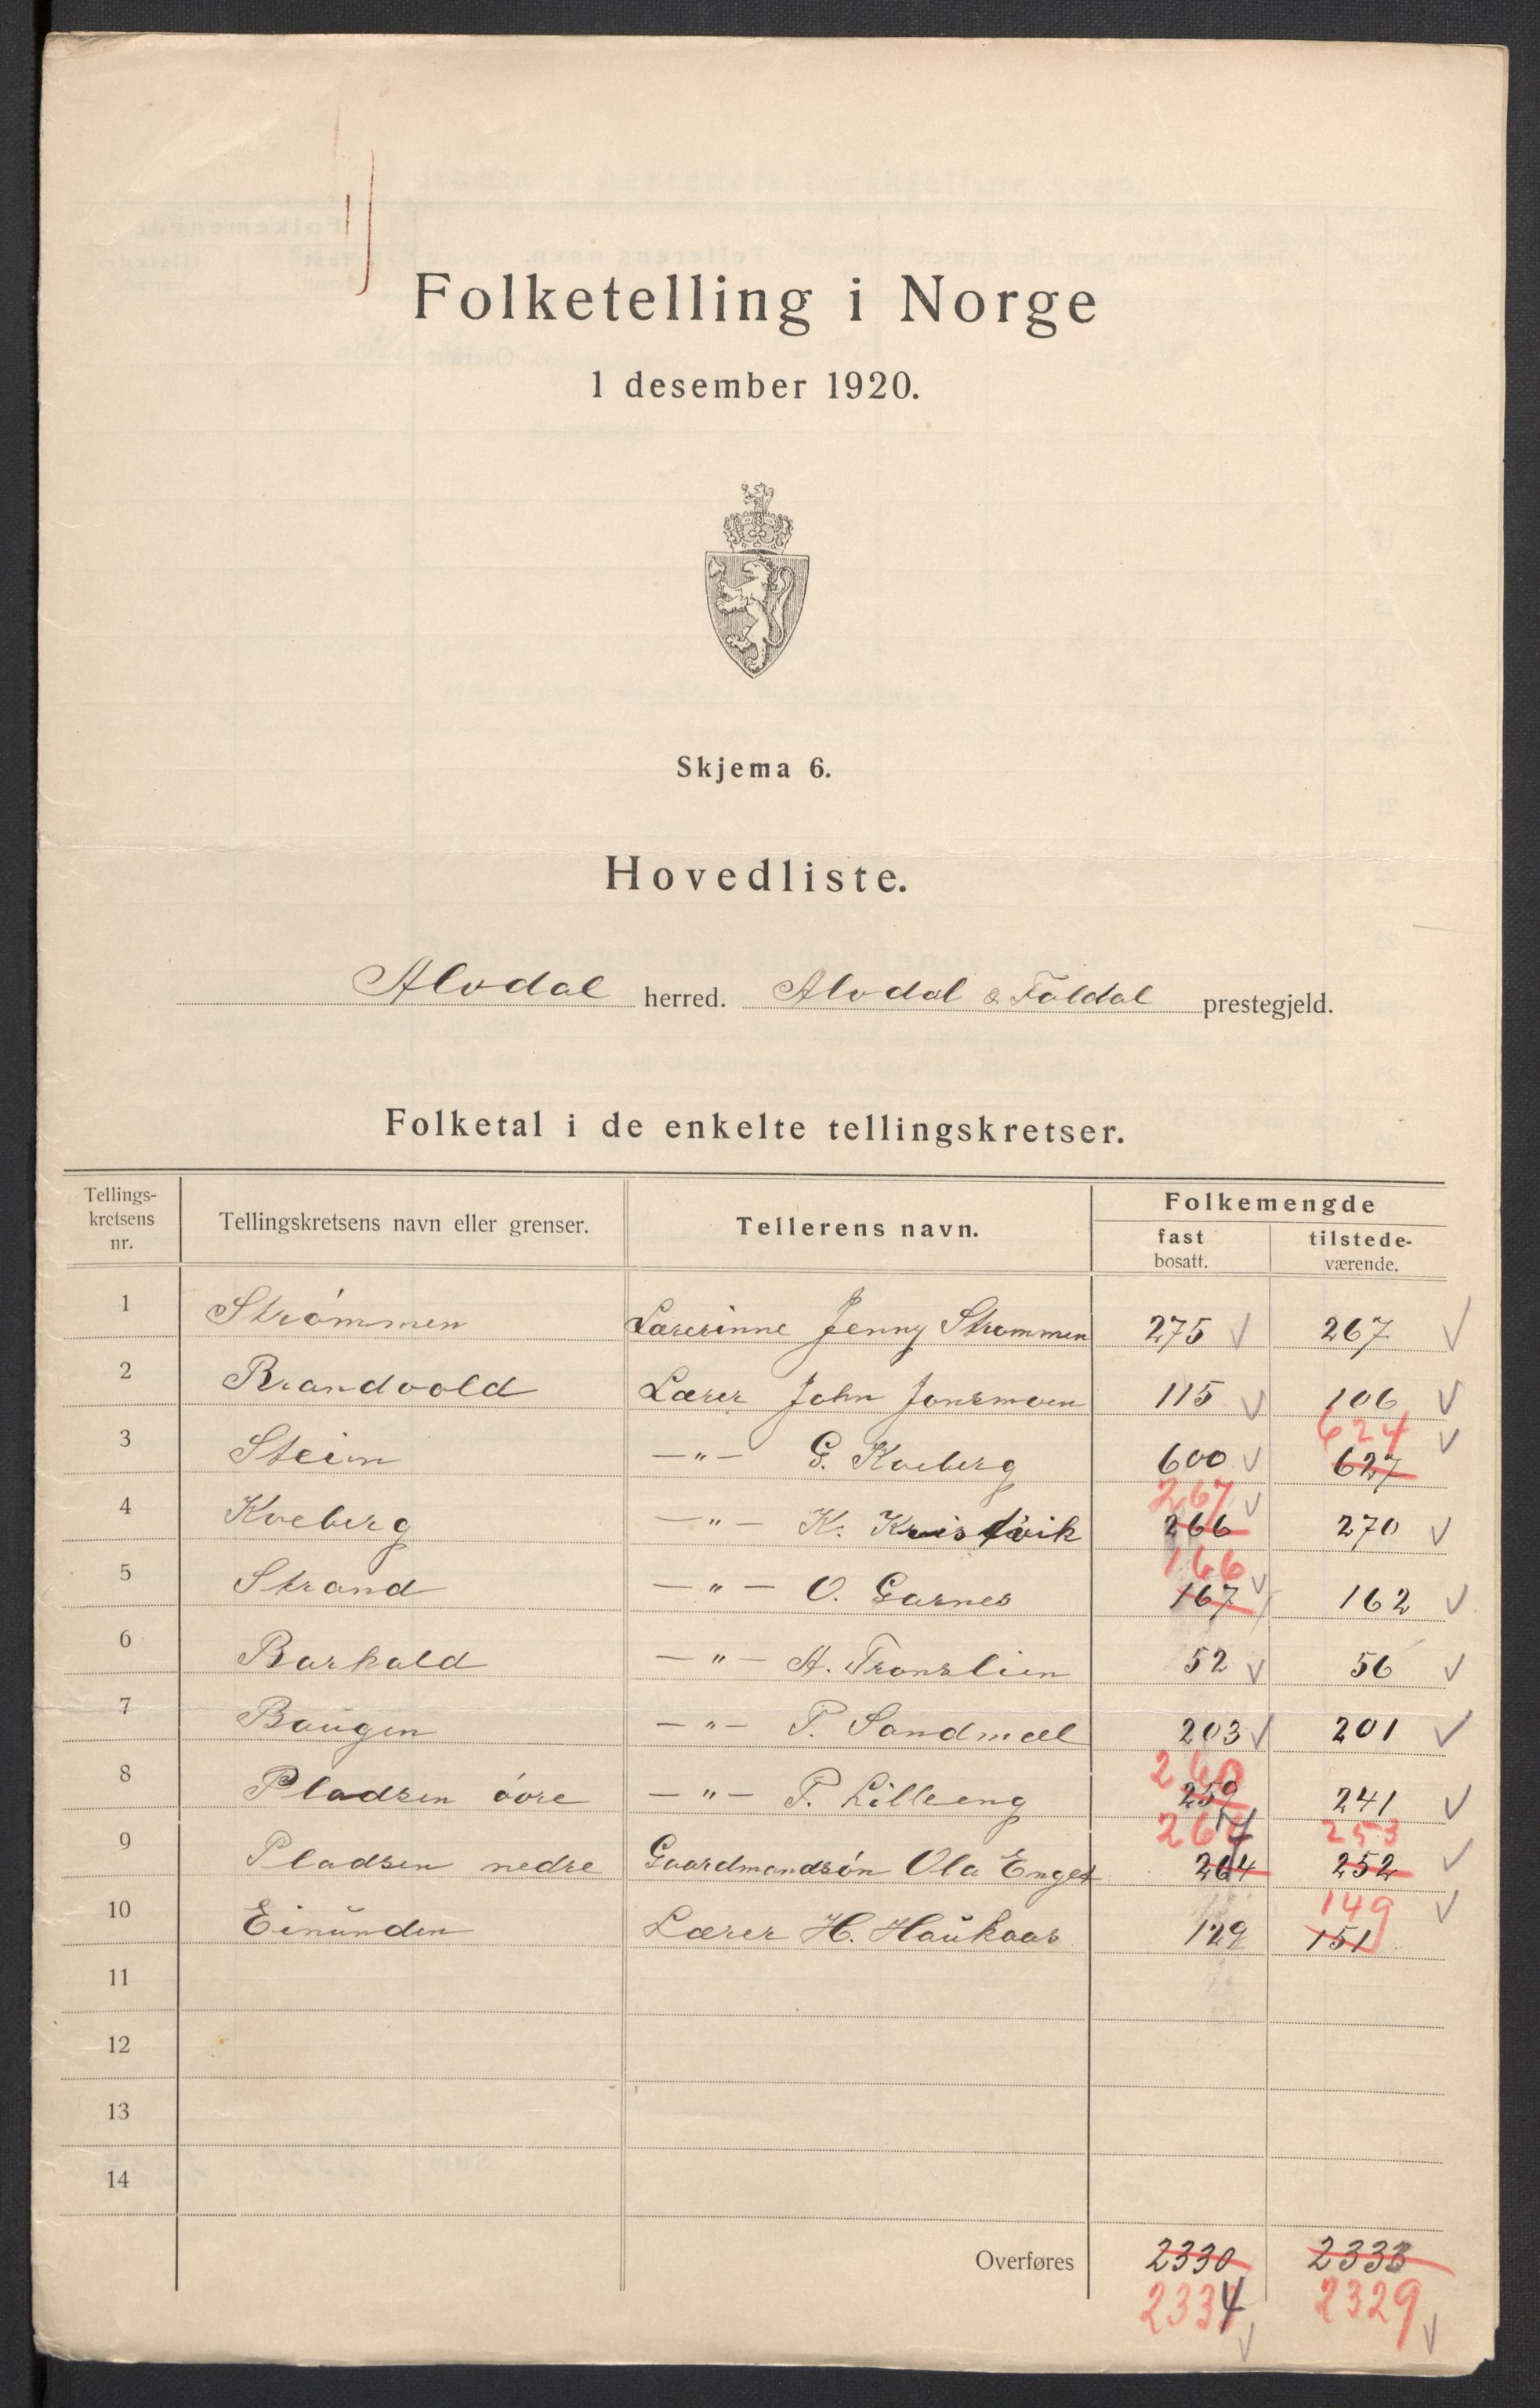 Folketelling i Norge
1 desember 1920.
Skjema 6.
Hovedliste.
Alvdal herred. Alvdal & Foldal prestegjeld.
Folketal i de enkelte tellingskretser.
Tellings- kretsens nr. Tellingskretsens navn eller grenser. Tellerens navn. Folkemengde fast bosatt. tilstede- værende.
1 Strømmen Lærerinne Jenny Strømmen 275 267
2 Brandvold Lærer John Jonsmoen 115 106
624
3 Steien —"— G. Kveberg 600 627
267
4 Kveberg —"— K. Kristvik 266 270
166
5 Strand —"— O. Garnes 167 162
6 Barkald —"— A. Tronslien 52 56
7 Baugen —"— P. Sandmæl 203 201
260
8 Pladsen øvre —"— P. Lilleeng 259 241
267 253
9 Pladsen nedre Gaardmandsøn Ola Enget 264 252
149
10 Einunden Lærer H. Haukaas 129 151
11
12
13
14
Overføres 2330 2333
2334 2329